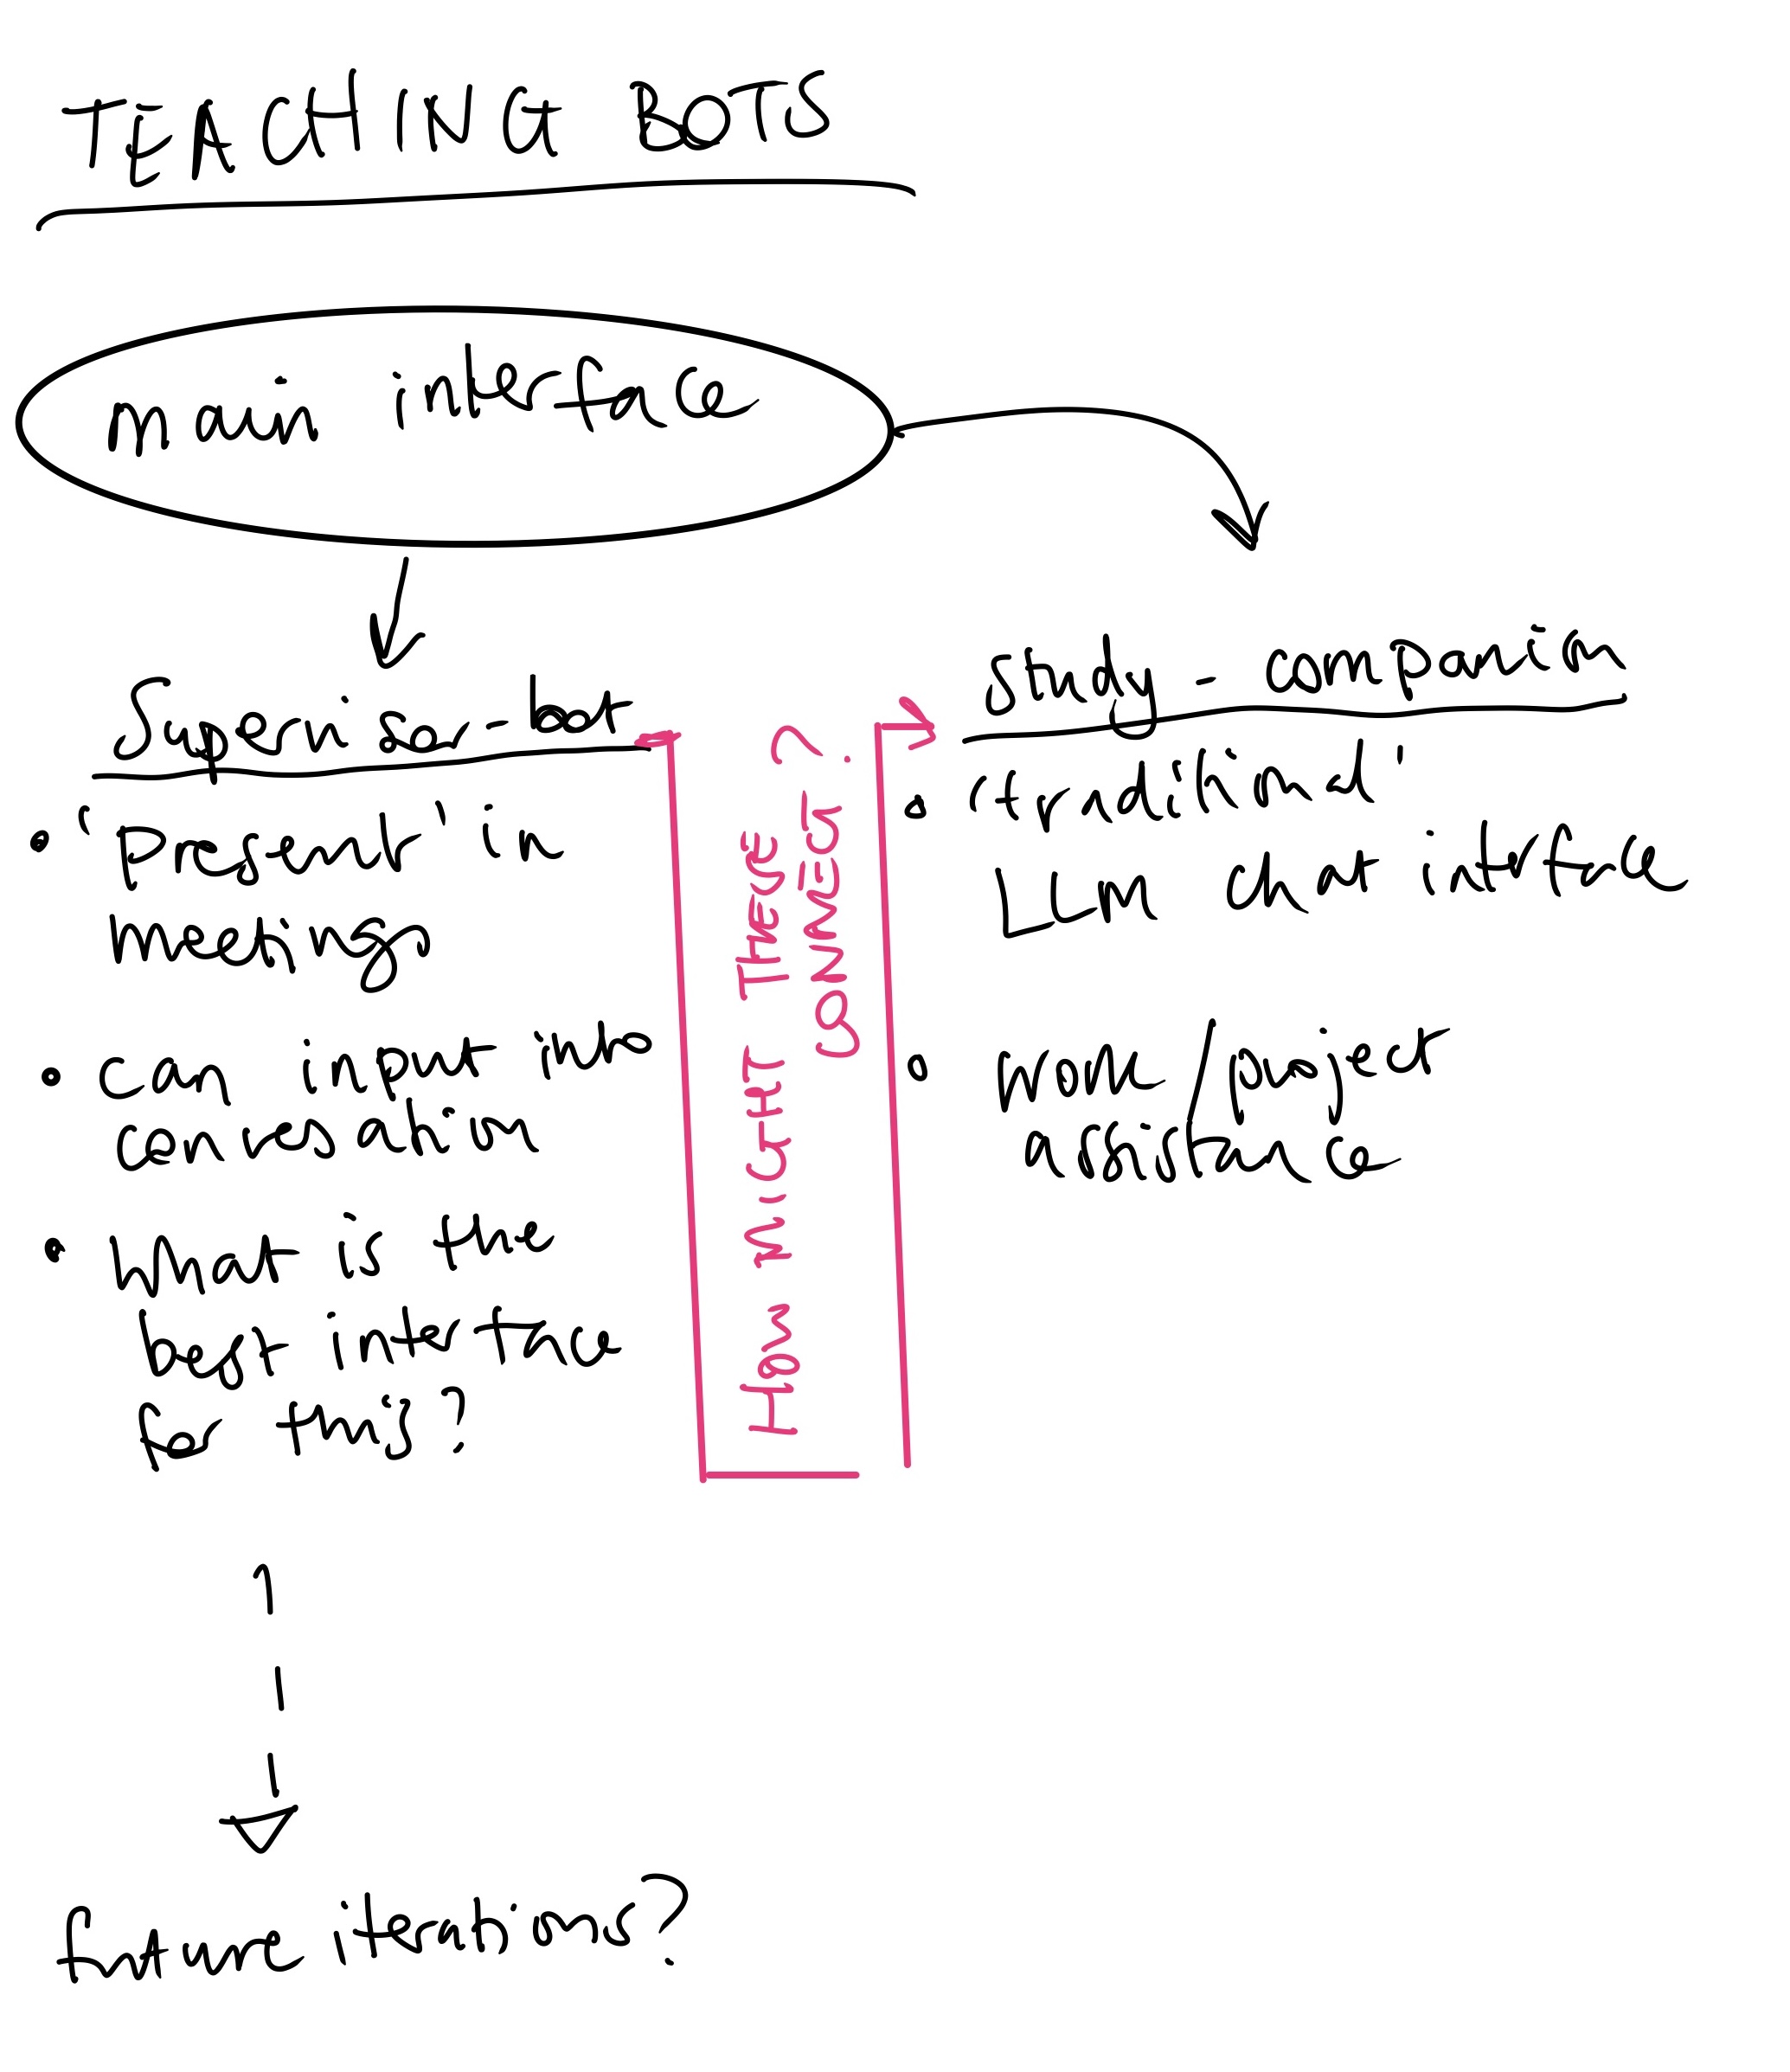 TEACHING BOTS
main interface
Supervisor-bot
• "Present" in
meetings
• can input into
conversation
• What is the
best interface
for this?
How MIGHT THESE
CONNECT?
study-companion
• "traditional"
LLM chat interface
• work/project
assistance
future iterations?